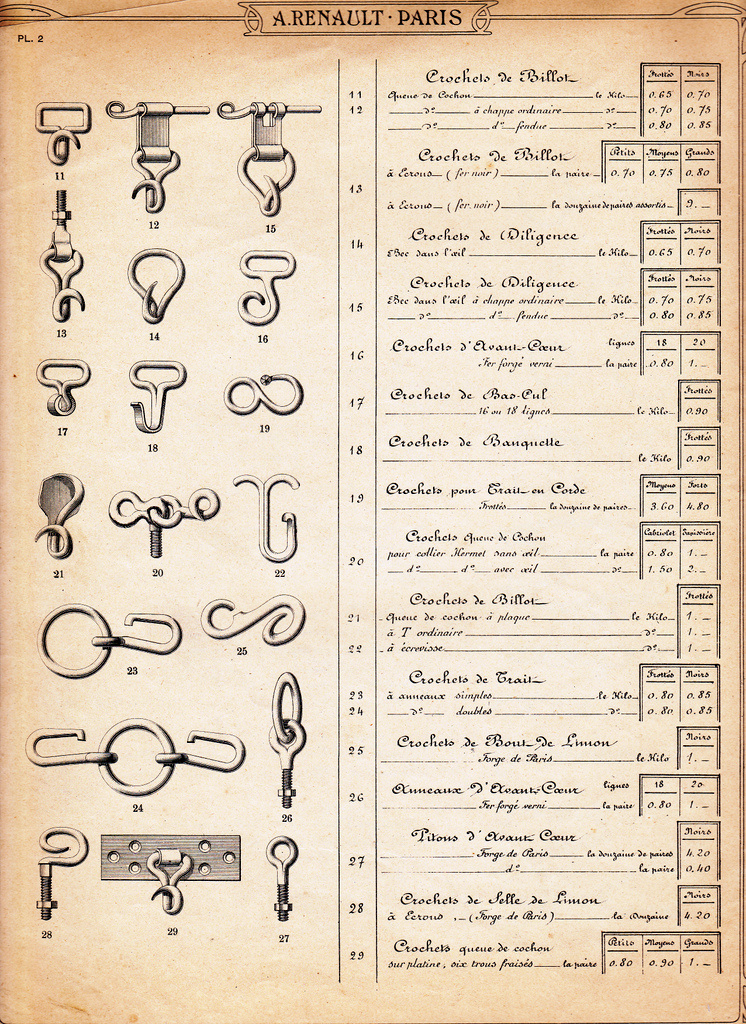 A. RENAULT · PARIS
PL. 2
11
12
15
13
14
16
17
18
19
21
20
22
23
25
24
26
28
29
27
Crochets de Billot Frottés Noirs
11 Queue de Cochon le Kilo 0.65 0.70
12 do à chappe ordinaire do 0.70 0.75
do do fendue do 0.80 0.85
Crochets de Billot Petits Moyens Grands
à Ecrous (fer noir) la paire 0.70 0.75 0.80
13
à Ecrous (fer noir) la douzaine de paires assorties 9.
Crochets de Diligence Frottés Noirs
14 Bec dans l'œil le Kilo 0.65 0.70
Crochets de Diligence Frottés Noirs
Bec dans l'œil à chappe ordinaire le Kilo 0.70 0.75
15 do do fendue do 0.80 0.85
Crochets d'Avant-Cœur lignes 18 20
16 Fer forgé verni la paire 0.80 1.
Crochets de Bas-Cul Frottés
17 16 ou 18 lignes le Kilo 0.90
Crochets de Banquette Frottés
18 le Kilo 0.90
Crochets pour Trait en Corde Moyens Forts
19 Frottés la douzaine de paires 3.60 4.80
Crochets queue de Cochon Cabriolet Tapissière
pour collier Hermet sans œil la paire 0.80 1.
20 do do avec œil do 1.50 2.
Crochets de Billot Frottés
21 Queue de cochon à plaque le Kilo 1.
à T ordinaire do 1.
22 à écrevisse do 1.
Crochets de Trait Frottés Noirs
23 à anneaux simples le Kilo 0.80 0.85
24 do doubles do 0.80 0.85
Crochets de Bout de Limon Noirs
25 Forge de Paris le Kilo 1.
Anneaux d'Avant-Cœur lignes 18 20
26 Fer forgé verni la paire 0.80 1.
Pitons d'Avant Cœur Noirs
27 Forge de Paris la douzaine de paires 4.20
do la paire 0.40
Crochets de Selle de Limon Noirs
28 à Ecrous (Forge de Paris) la Douzaine 4.20
Crochets queue de cochon Petits Moyens Grands
29 sur platine, six trous fraisés la paire 0.80 0.90 1.